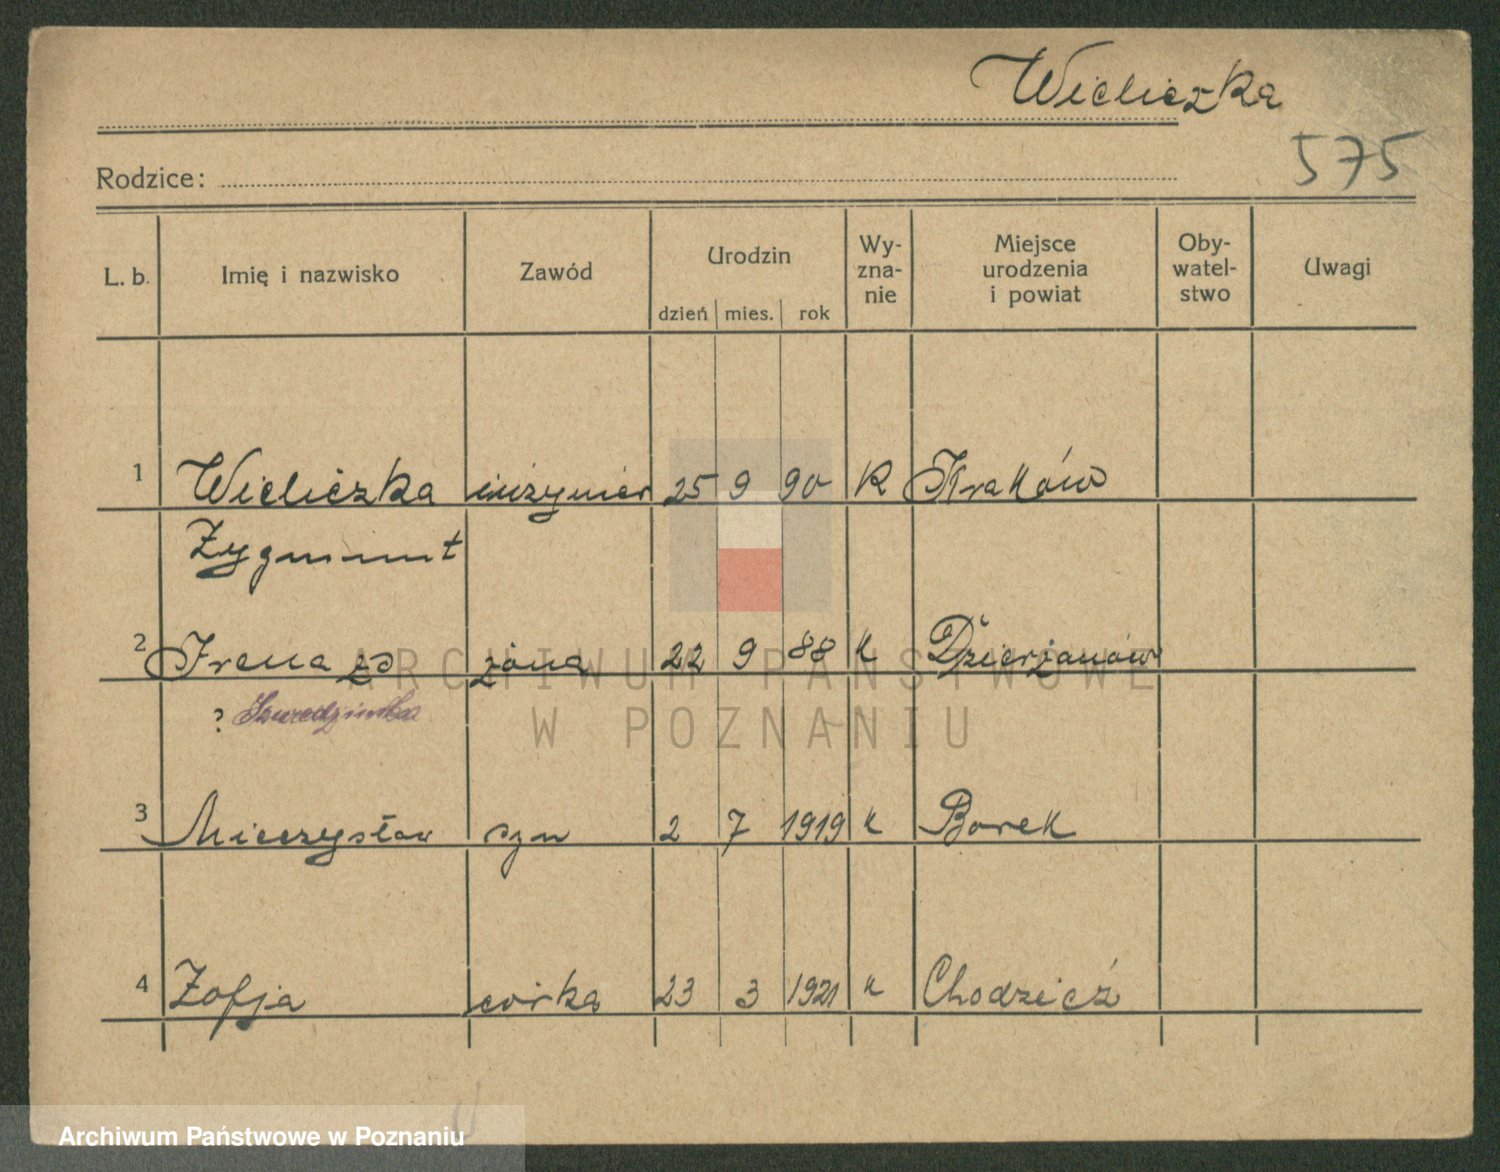 Wieliczka
575
Rodzice:
L. b. Imię i nazwisko Zawód Urodzin dzień mies. rok Wy-zna-nie Miejsce urodzenia i powiat Oby-watel-stwo Uwagi
1 Wieliczka inżynier 25 9 90 K Kraków
Zygmunt
2 Irena zd żona 22 9 88 K Dzierżanów
?
3 Mieczysław syn 2 7 1919 K Borek
4 Zofja córka 23 3 1921 " Chodzież
ARCHIWUM PAŃSTWOWE
W POZNANIU
Archiwum Państwowe w Poznaniu